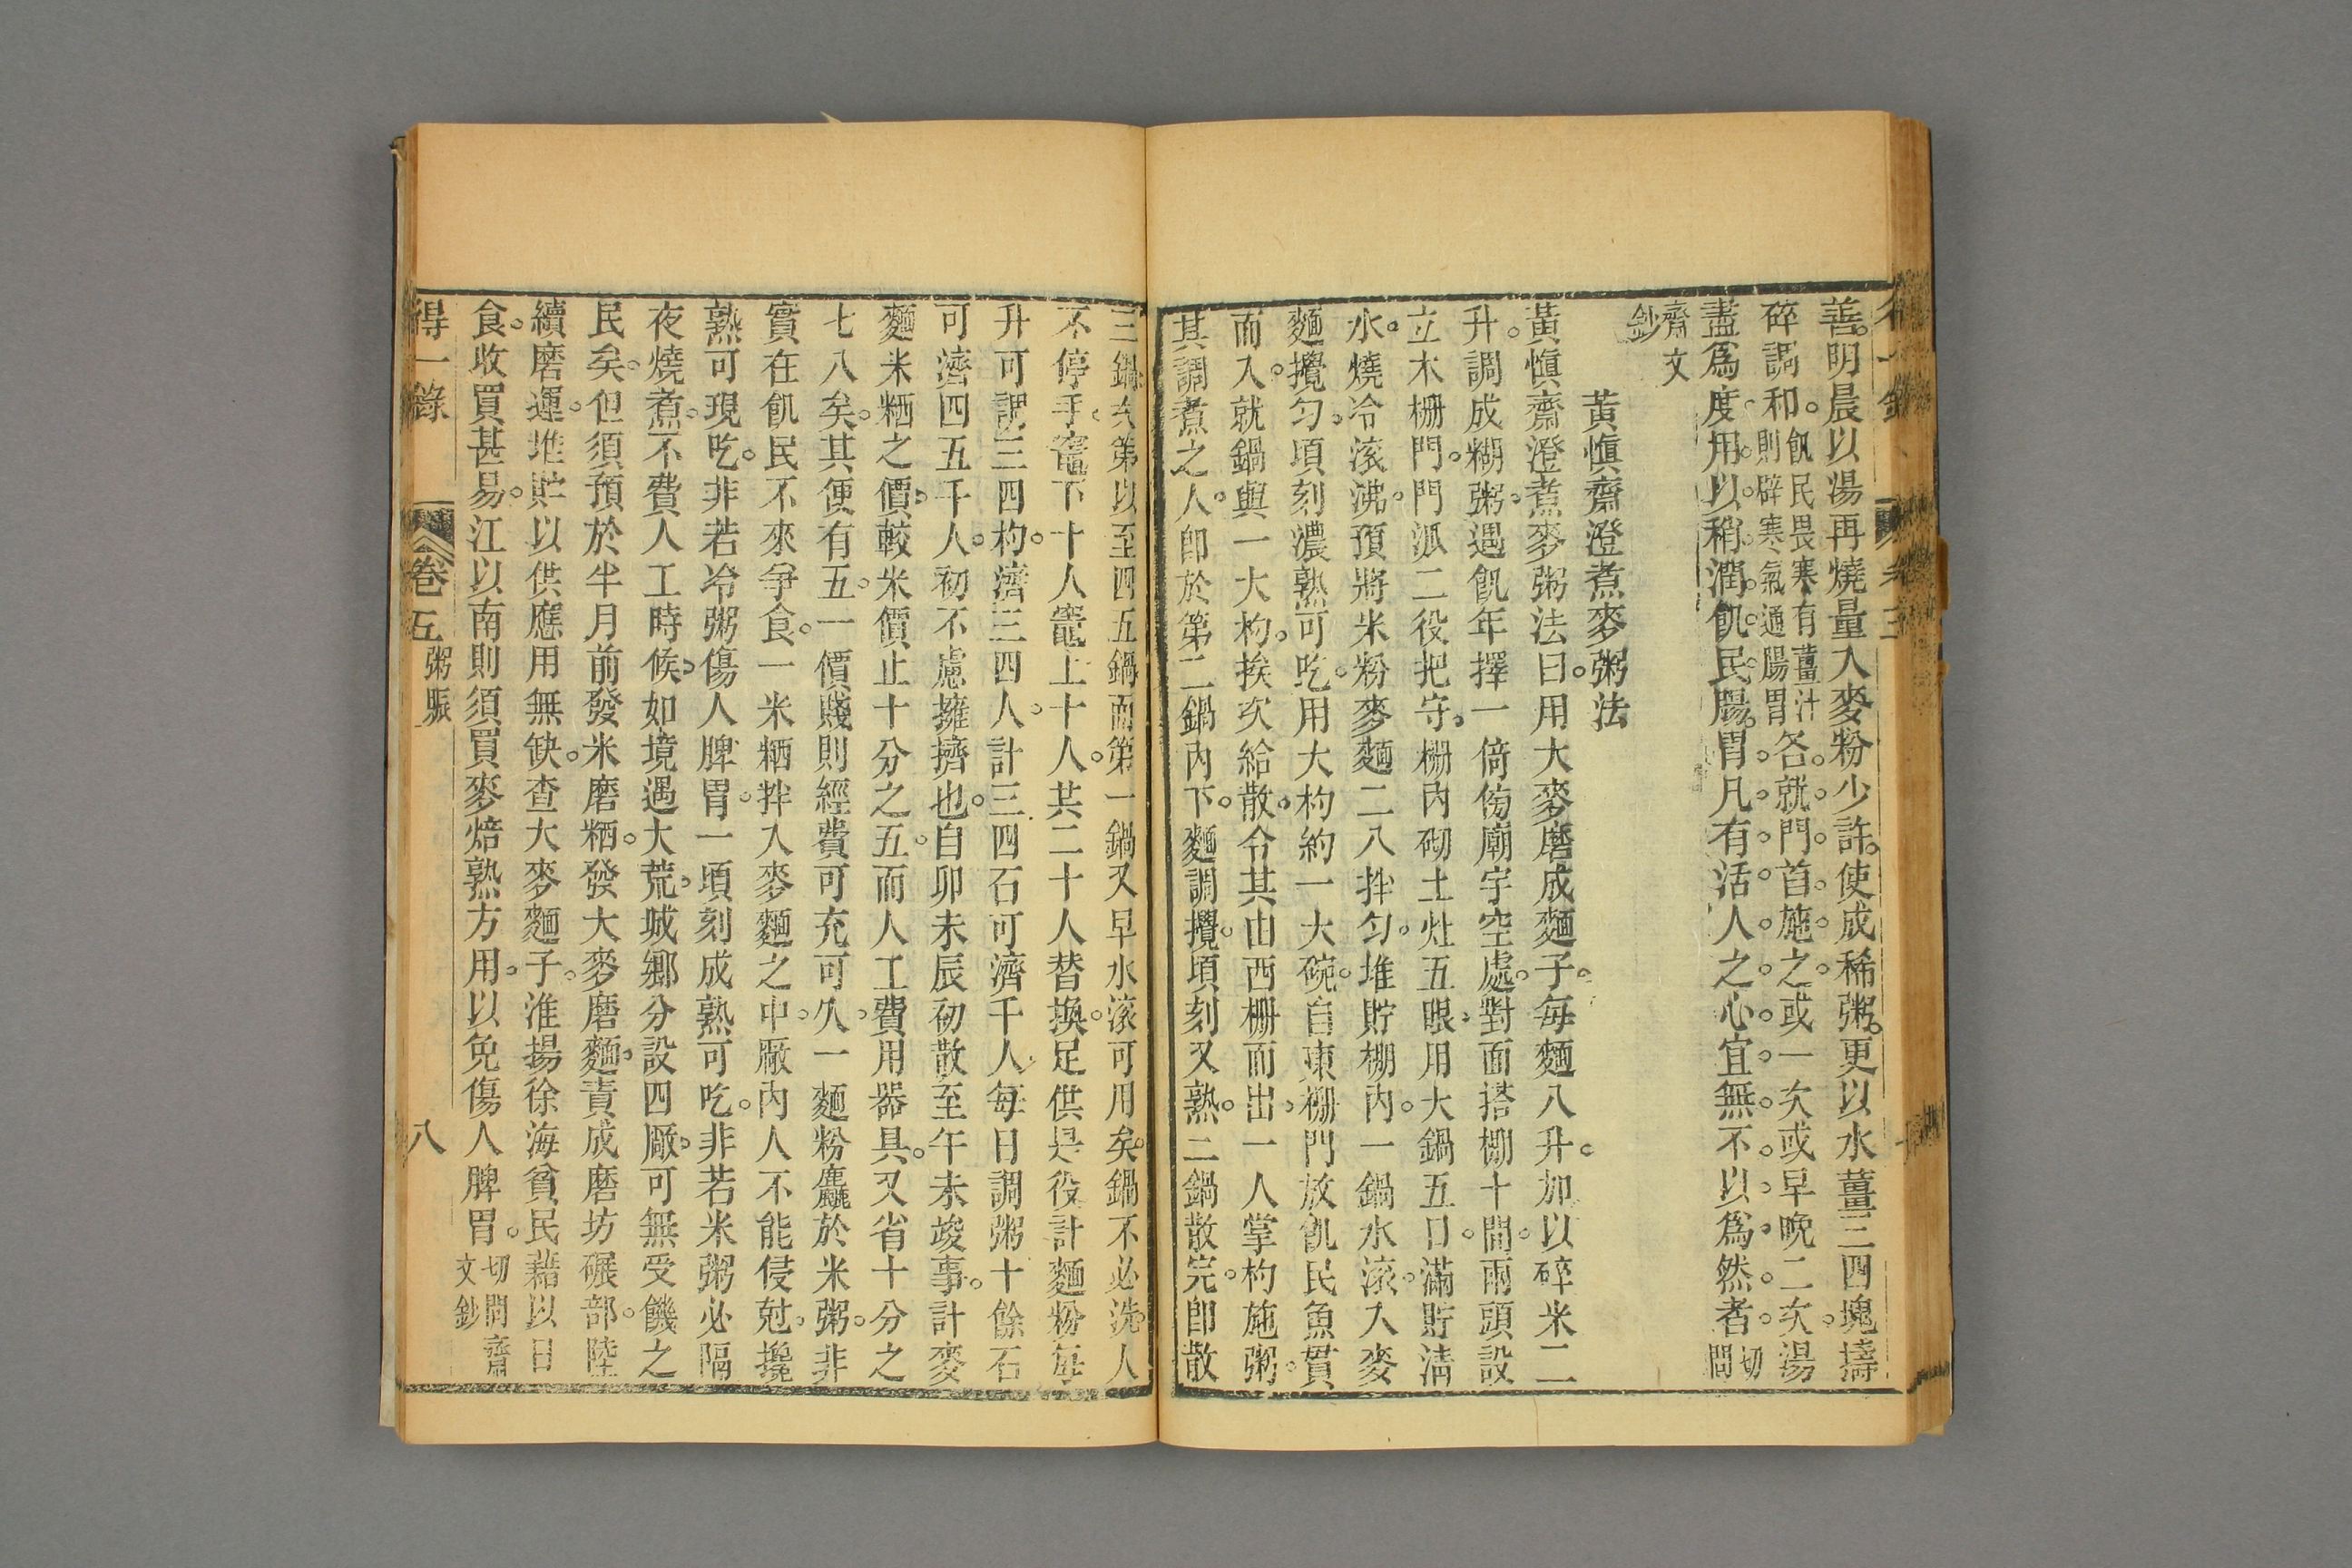 善。明晨以湯再燒量入麥粉少許。使成稀粥。更以水薑三四塊擣
碎調和。飢民畏寒有薑汁則辟寒氣通腸胃各就門首施之。或一次或早晚二次湯
盡爲度用以稍潤飢民腸胃。凡有活人之心宜無不以爲然者切問
齋文鈔
黃愼齋澄煮麥粥法
黃愼齋澄煮麥粥法曰。用大麥磨成麵子。每麵八升。加以碎米二
升。調成糊粥。遇飢年擇一倚傍廟宇空處。對面搭棚十間。兩頭設
立木柵門。門派二役把守。柵內砌土灶五眼。用大鍋五口。滿貯清
水。燒冷滾沸。預將米粉麥麵二八拌勻。堆貯棚內。一鍋水滾。入麥
麵攪勻。頃刻濃熟可吃。用大杓約一大碗。自東柵門放飢民魚貫
而入。就鍋與一大杓。挨次給散。令其由西柵而出。一人掌杓施粥。
其調煮之人。卽於第二鍋內下。麵調攪。頃刻又熟。二鍋散完。卽散
三鍋。次第以至四五鍋而第一鍋又早水滾可用矣。鍋不必洗。人
不停手。竈下十人竈上十人。共二十人替換。足供是役計麵粉每
升可調三四杓。濟三四人。計三四石可濟千人。每日調粥十餘石
可濟四五千人。初不慮擁擠也。自卯未辰初散至午未竣事。計麥
麵米粞之價。較米價止十分之五。而人工費用器具。又省十分之
七八矣。其便有五。一價賤則經費可充可久。一麵粉麤於米粥。非
實在飢民不來爭食。一米粞拌入麥麵之中。厰內人不能侵尅。攙
熟可現吃。非若冷粥傷人脾胃。一頃刻成熟可吃。非若米粥必隔
夜燒煮。不費人工時候。如境遇大荒。城鄉分設四厰。可無受饑之
民矣。但須預於半月前發米磨粞。發大麥磨麵。責成磨坊碾部。陸
續磨運。堆貯以供應用無缺。查大麥麵子。淮揚徐海貧民藉以日
食。收買甚易。江以南則須買麥焙熟方用。以免傷人脾胃。切問齋文鈔
得一錄 卷五 粥賑 八